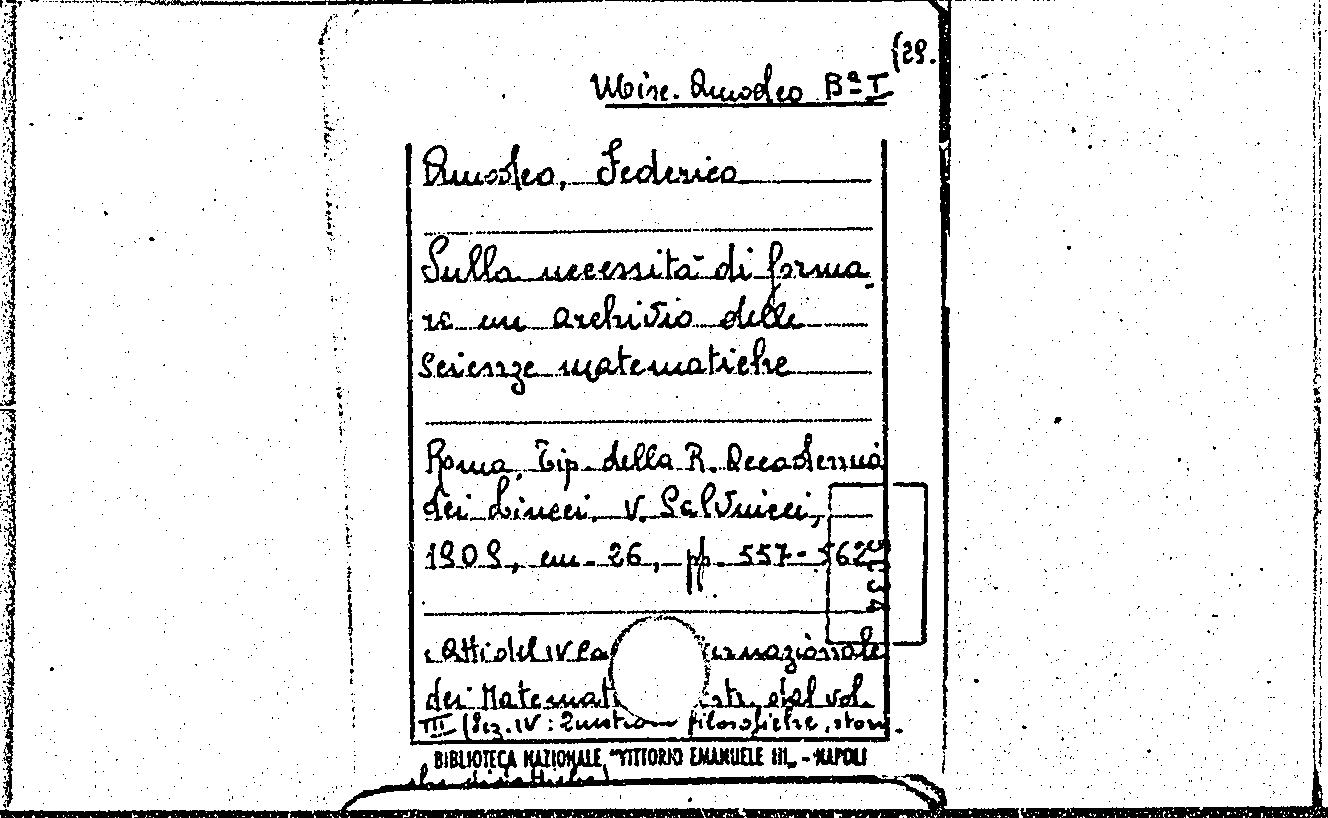 (29.
Misc. Amodeo Bª I
Amodeo, Federico
Sulla necessità di forma-
re un archivio delle
scienze matematiche
Roma, Tip. della R. Accademia
dei Lincei, V. Salviucci,
1909, cm. 26, pp. 557-562
(Atti del IV Co ernazionale
dei Matemat Estr. dal vol.
III (Sez. IV: Questioni filosofiche, stori-
che didattiche)
BIBLIOTECA NAZIONALE "VITTORIO EMANUELE III" - NAPOLI